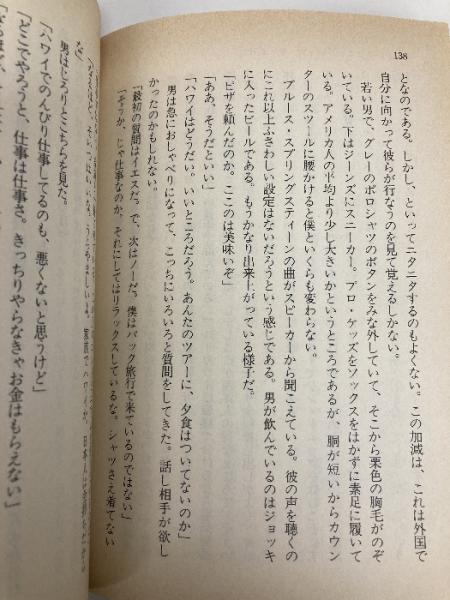 138
となのである。しかし、といってニタニタするのもよくない。この加減は、これは外国で
自分に向かって彼らが行なうのを見て覚えるしかない。
若い男で、グレーのポロシャツのボタンをみな外していて、そこから栗色の胸毛がのぞ
いている。下はジーンズにスニーカー。プロ・ケッズをソックスをはかずに素足に履いて
いる。アメリカ人の平均より少し大きいかというところであるが、胴が短いからカウン
ターのスツールに腰かけると僕といくらも変わらない。
ブルース・スプリングスティーンの曲がスピーカーから聞こえている。彼の声を聴くの
にこれ以上ふさわしい設定はないだろうという感じである。男が飲んでいるのはジョッキ
に入ったビールである。もうかなり出来上がっている様子だ。
「ピザを頼んだのか。ここのは美味いぞ」
「ああ、そうだといい」
「ハワイはどうだい。いいところだろう。あんたのツアーに、夕食はついてないのか」
男は急におしゃべりになって、こっちにいろいろと質問をしてきた。話し相手が欲し
かったのかもしれない。
「最初の質問はイエスだ。で、次はノーだ。僕はパック旅行で来ているのではない」
「そうか、じゃ仕事なのか、それにしてはリラックスしているな。シャツさえ着てない
だ」
男はじろりとこちらを見た。
「ハワイでのんびり仕事してるのも、悪くないと思うけど」
「どこでやろうと、仕事は仕事さ。きっちりやらなきゃお金はもらえない」